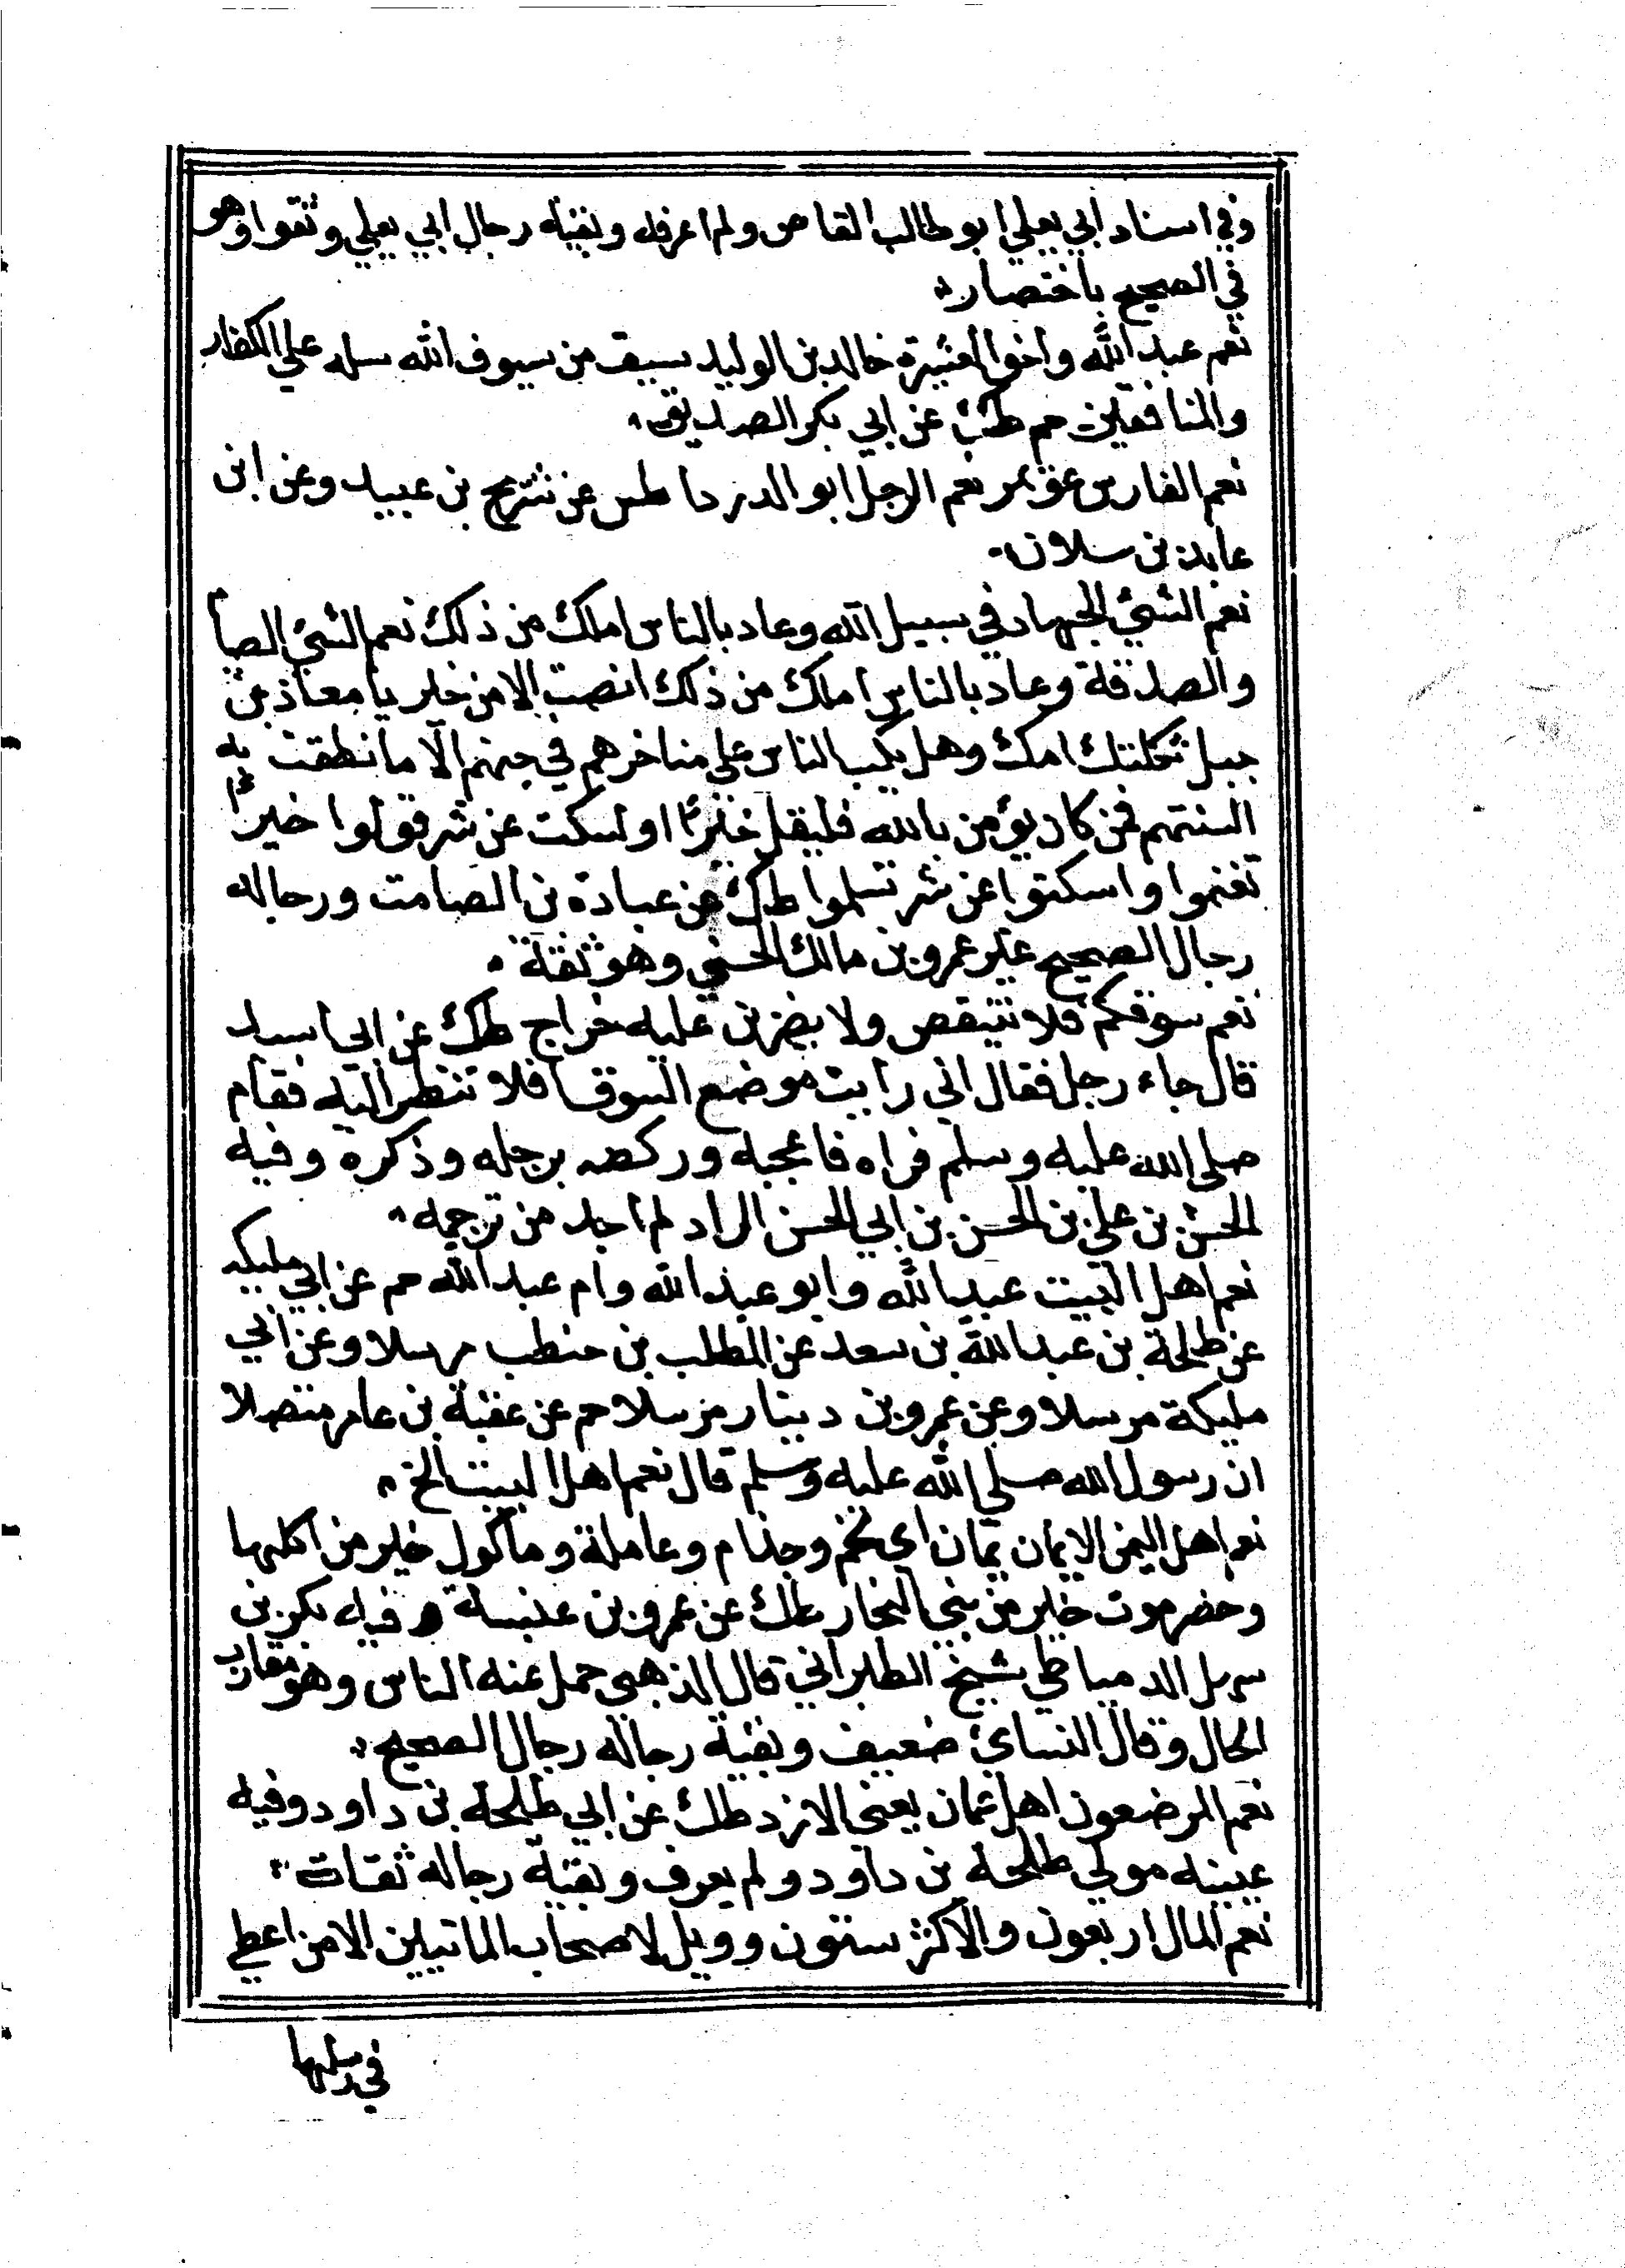 وفي اسناد ابي يعلي ابو طالب القاص ولم اعرفه وبقية رجال ابي يعلي وثقوا وهو
في الصحيح باختصار
نعم عبد الله واخو العشيرة خالد بن الوليد سيف من سيوف الله سله علي الكفار
والمنافقين حم طك عن ابي بكر الصديق
نعم الفارس عويمر نعم الرجل ابو الدردا طس عن شريح بن عبيد وعن ابن
عايذ بن سلان
نعم الشئ الجهاد في سبيل الله وعاد بالناس املك من ذلك نعم الشئ الصيام
والصدقة وعاد بالناس املك من ذلك انصت الا من خير يا معاذ بن
جبل ثكلتك امك وهل يكب الناس علي مناخرهم في جهنم الا ما نطقت به
السنتهم فمن كان يؤمن بالله فليقل خيرا او ليسكت عن شر قولوا خيرا
تغنموا واسكتوا عن شر تسلموا طك عن عبادة بن الصامت ورجاله
رجال الصحيح غير عمرو بن مالك الجنبي وهو ثقة
نعم سوقكم فلا ينتقص ولا يضربن عليه خراج طك عن ابي اسيد
قال جاء رجل فقال اني رايت موضع السوق افلا تنظر اليه فقام
صلي الله عليه وسلم فراه فاعجبه وركضه برجله وذكره وفيه
الحسن بن علي بن الحسن بن ابي الحسن الراد لم اجد من ترجمه
نعم اهل البيت عبد الله وابو عبد الله وام عبد الله حم عن ابي مليكه
عن طلحة بن عبد الله بن سعد عن المطلب بن حنطب مرسلا وعن ابي
مليكة مرسلا وعن عمرو بن دينار مرسلا حم عن عقبة بن عامر متصلا
ان رسول الله صلي الله عليه وسلم قال نعم اهل البيت الخ
نعم اهل اليمن الايمان يمان اي لخم وجذام وعاملة وماكول خير من اكلها
وحضرموت خير من بني الحارث طك عن عمرو بن عنبسة وفيه بكر بن
سهل الدمياطي شيخ الطبراني قال الذهبي حمل عنه الناس وهو مقارب
الحال وقال النسائ ضعيف وبقية رجاله رجال الصحيح
نعم المرضعون اهل عمان يعني الازد طك عن ابي طلحة بن داود وفيه
عيينه مولي طلحة بن داود ولم يعرف وبقية رجاله ثقات
نعم المال اربعون والاكثر ستون وويل لاصحاب الماتيين الا من اعطي
في رسلها